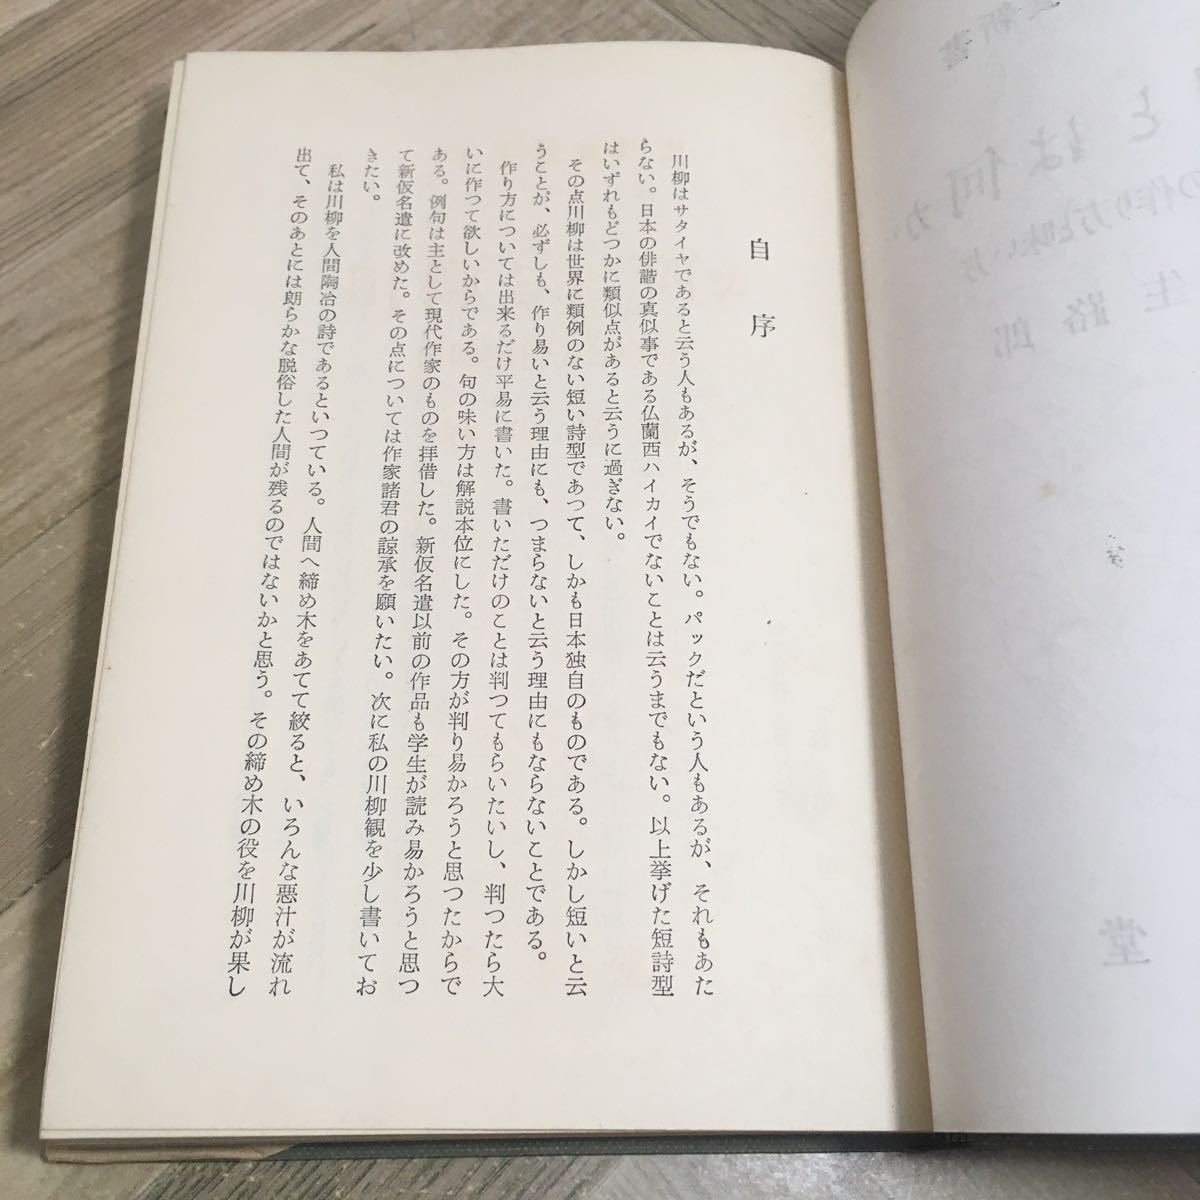 新書
とは何か
の作り方と味い方
生路郎
堂
自序
川柳はサタイヤであると云う人もあるが、そうでもない。パックだという人もあるが、それもあた
らない。日本の俳諧の真似事である仏蘭西ハイカイでないことは云うまでもない。以上挙げた短詩型
はいずれもどつかに類似点があると云うに過ぎない。
その点川柳は世界に類例のない短い詩型であつて、しかも日本独自のものである。しかし短いと云
うことが、必ずしも、作り易いと云う理由にも、つまらないと云う理由にもならないことである。
作り方については出来るだけ平易に書いた。書いただけのことは判つてもらいたいし、判つたら大
いに作つて欲しいからである。句の味い方は解説本位にした。その方が判り易かろうと思つたからで
ある。例句は主として現代作家のものを拝借した。新仮名遣以前の作品も学生が読み易かろうと思つ
て新仮名遣に改めた。その点については作家諸君の諒承を願いたい。次に私の川柳観を少し書いてお
きたい。
私は川柳を人間陶冶の詩であるといつている。人間へ締め木をあてて絞ると、いろんな悪汁が流れ
出て、そのあとには朗らかな脱俗した人間が残るのではないかと思う。その締め木の役を川柳が果し